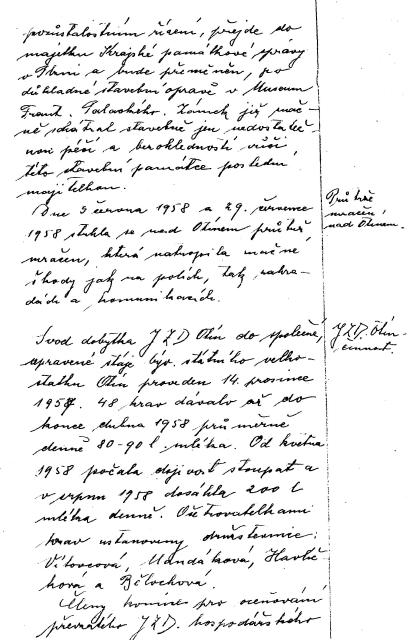 pozůstalostním řízení, přejde do
majetku Krajské památkové správy
v Plzni a bude přeměněn, po
důkladné stavební opravě v Museum
Frant. Palackého. Zámek již znač-
ně schátral stavebně jen nedostateč-
nou péčí a bezohledností vůči
této stavební památce poslední
majitelkou.
Dne 5 června 1958 a 29. července
1958 strhla se nad Otínem průtrž
mračen, která natropila značné
škody jak na polích, tak zahra-
dách a komunikacích.
Průtrž
mračen
nad Otínem.
Svod dobytka JZD Otín do společné,
upravené stáje býv. státního velko-
statku Otín proveden 14. prosince
1957. 48 krav dávalo až do
konce dubna 1958 průměrně
denně 80-90 l mléka. Od května
1958 počala dojivost stoupat a
v srpnu 1958 dosáhla 200 l
mléka denně. Ošetřovatelkami
krav ustanoveny družstevnice:
Vítovcová, Mandáková, Havlíč-
ková a Bělochová.
Členy komise pro oceňování
převzatého JZD. hospodářského
JZD. Otín
činnost.